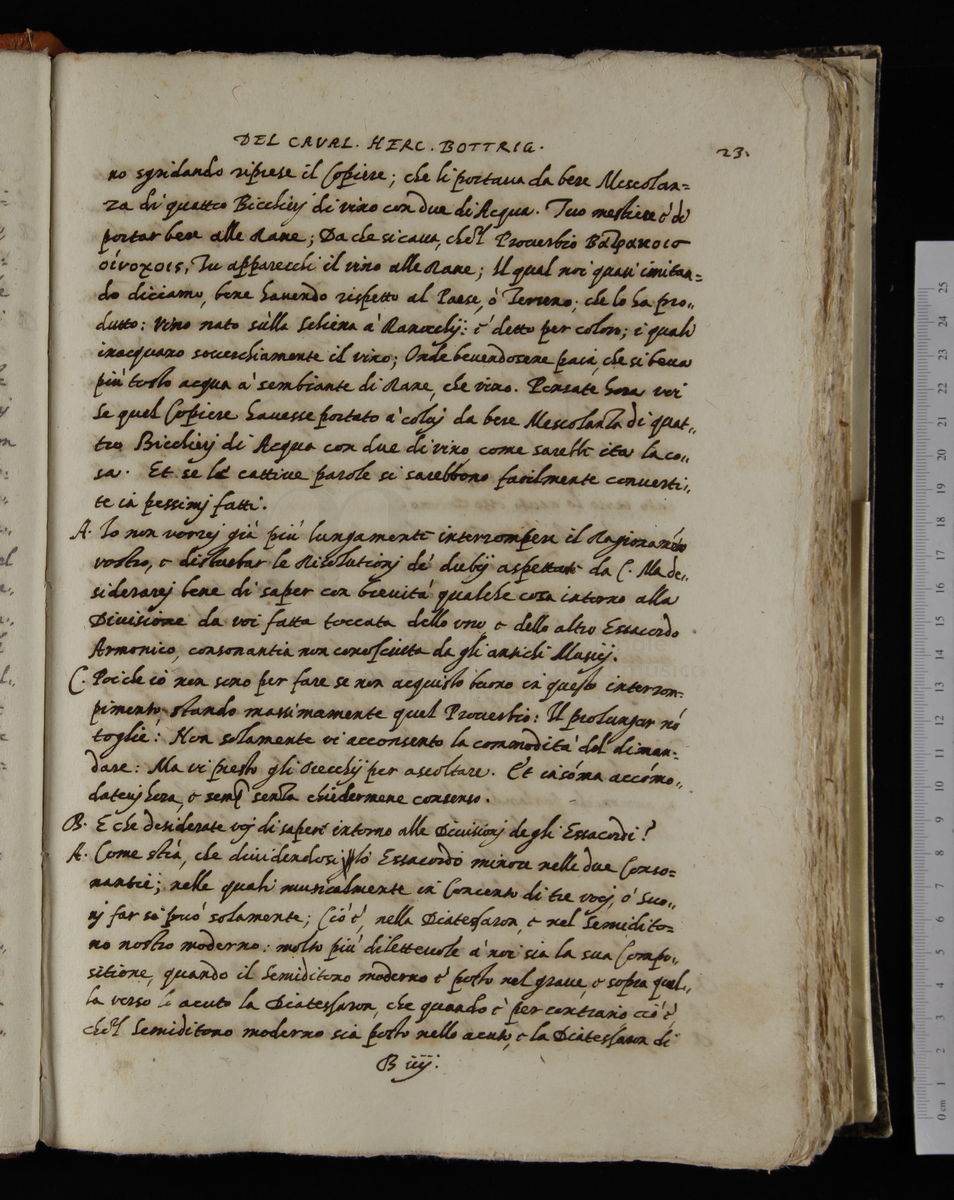 DEL CAVAL. HERC. BOTTRIG.
23.
no sgridando riprese il Copiere; che li portaua da bere Mescolan=
za di quattro Bicchierj di vino con due di Acqua. Tuo mestiere è di
portar bere alle Rane; Da che si caua, che'l Prouerbio Βατραχοισ
οίνοχοις, Tu apparecchi il vino alle Rane; Il qual noi quasi imitan=
do diciamo, bene hauendo rispetto al Paese, ò Terreno, che lo ha pro,,
dutto: Vino nato sùlla schena à Ranocchij: è detto per coloro; i quali
inacquano souerchiamente il vino; Onde beuendosene paia, che si beua
più tosto acqua à sembiante di Rane, che vino. Pensate hora voi
se quel Copiere hauesse portato à coluj da bere Mescolanza di quat,,
tro Bicchierj di Acqua con due di vino, come sarebbe ita la co,,
sa. Et se le cattiue parole si sarebbono facilmente conuerti,,
te in pessimj fatti.
A. Io non vorrej già più lungamente interrompere il Ragionamẽto
vostro, e disturbar le Risolutionj de' dubij aspettate da C. Ma de,,
siderarej bene di saper con breuità qualche cosa intorno alla
Diuisione da voi fatta toccata dello vno e dello altro Essacordo
Armonico, consonantia non conosciuta da gli antichi Musicj.
C. Poiche io non sono per fare se non acquisto buono in questo interrom=
pimento, stando massimamente quel Prouerbio: Il prolungar nõ
toglie: Non solamente vi acconsento la commodità del diman=
dare: Ma vi presto gli orecchij per ascoltare. Et in sõma accõmo,,
dateuj hora, e semp senza chiedermene consenso.
B. E che desiderate voj di saper intorno alle Diuisionj de gli Essacordi?
A. Come stià, che diuidendosi lo Essacordo minore nelle due Conso=
nantie; nelle quali musicalmente in Concento di tre vocj, ò Suo,,
nj far si può solamente; Ciò è, nella Diatessaron, e nel Semidito=
no nostro moderno: molto più diletteuole à noi sia la sua Compo,,
sitione, quando il Semiditono moderno è posto nel graue, e sopra quel,,
la verso lo acuto la Diatessaron, che quando è per contrario ciò è
che'l Semiditono moderno sia posto nello acuto, e la Diatessaron di
B iiij.